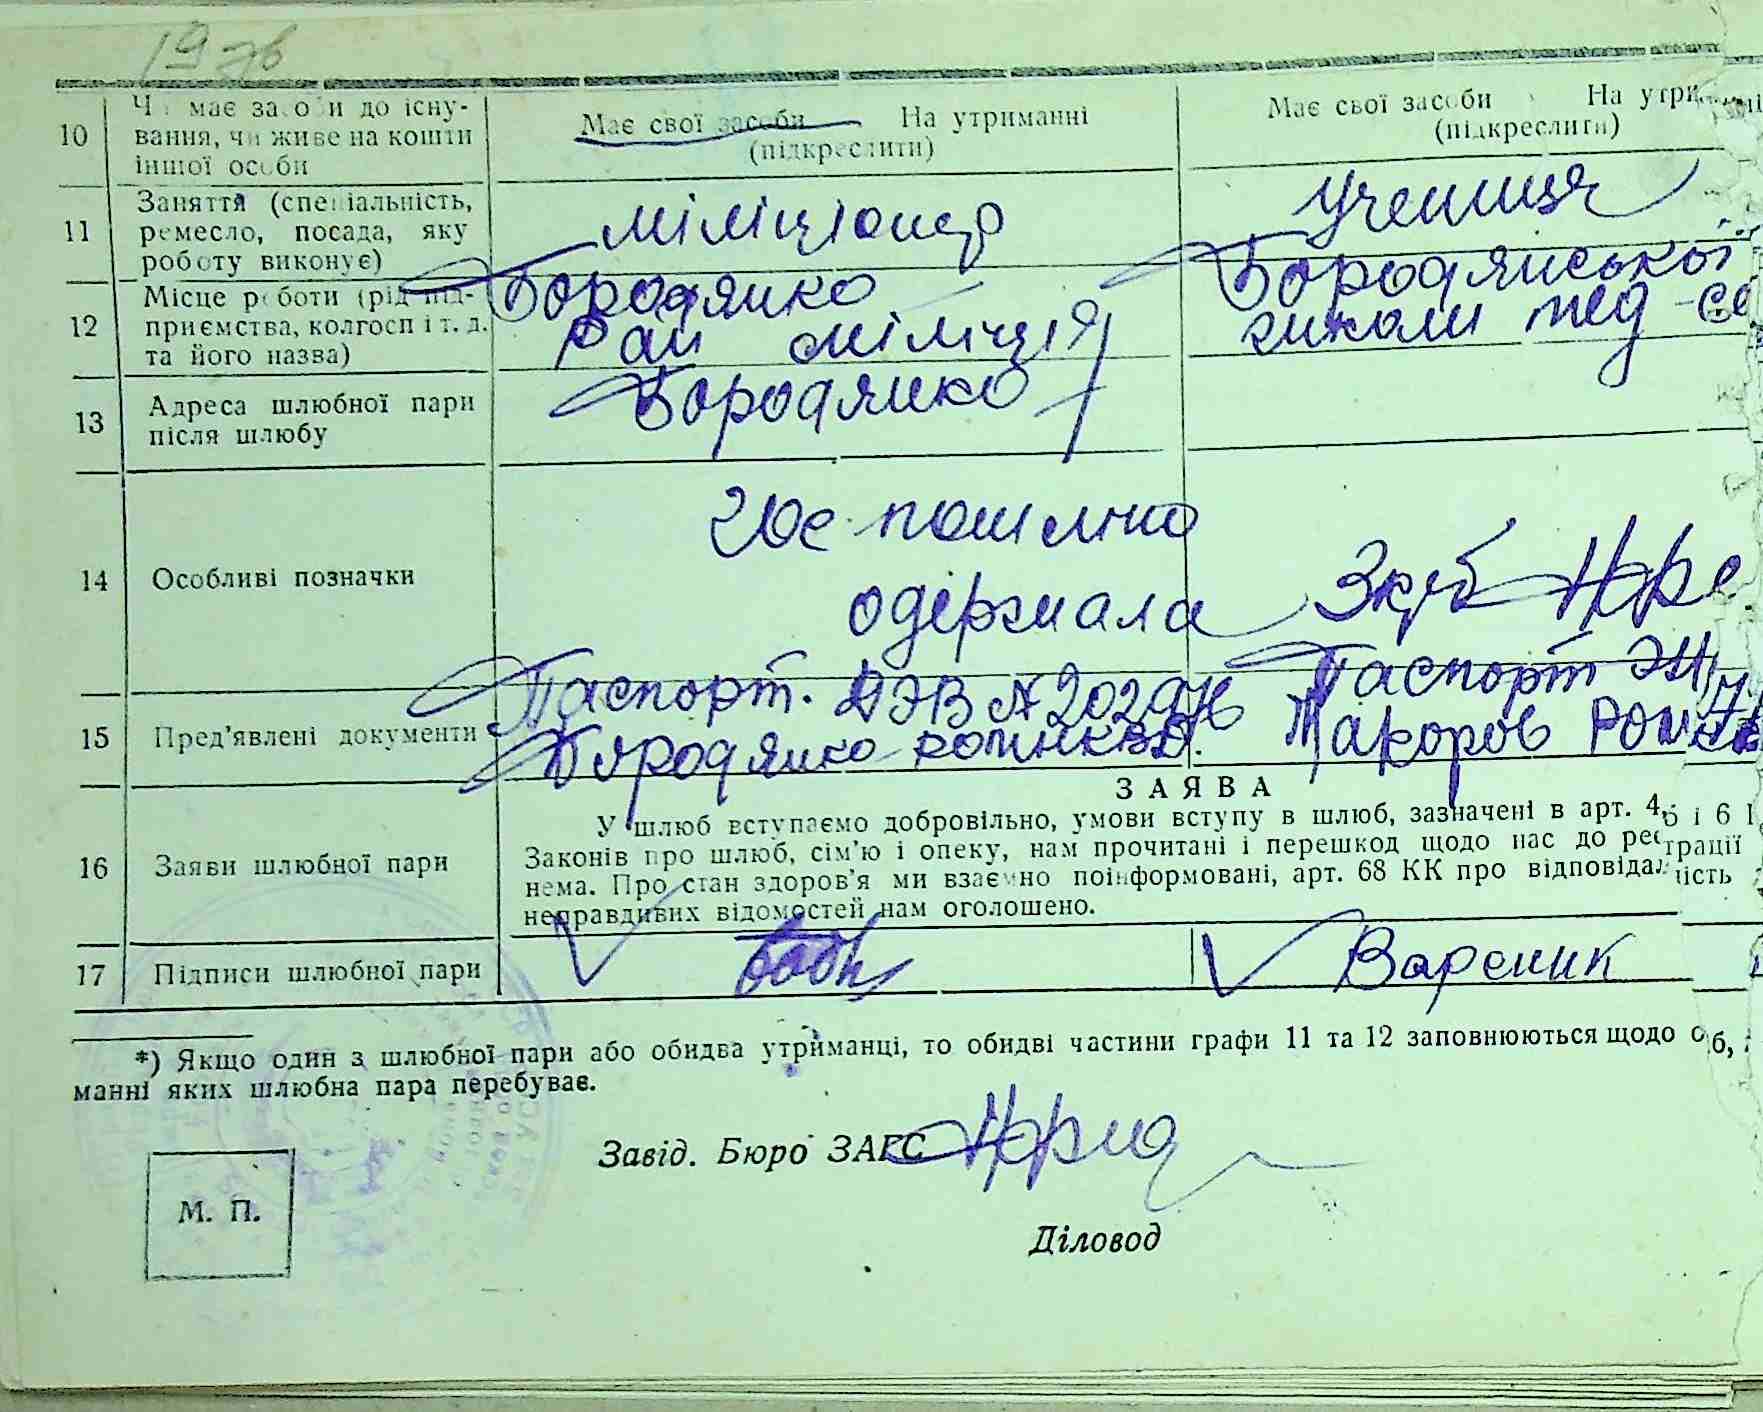 19
10 Чи має засоби до існу-
вання, чи живе на кошти
іншої особи
Має свої засоби На утриманні
(підкреслити)
Має свої засоби На утри
(підкреслити)
11 Заняття (спеціальність,
ремесло, посада, яку
роботу виконує)
міліціонер
учениця
12 Місце роботи (рід під-
приємства, колгосп і т. д.
та його назва)
Бородянко
Рай міліція
Бородянської
школи мед-се
13 Адреса шлюбної пари
після шлюбу
Бородянко
14 Особливі позначки
одержала
15 Пред’явлені документи
Паспорт.
Бородянко
Паспорт
Макоров
ЗАЯВА
16 Заяви шлюбної пари
У шлюб вступаємо добровільно, умови вступу в шлюб, зазначені в арт. 4, 5 і 6
Законів про шлюб, сім’ю і опеку, нам прочитані і перешкод щодо нас до реєстрації
нема. Про стан здоров’я ми взаємно поінформовані, арт. 68 КК про відповідальність
неправдивих відомостей нам оголошено.
17 Підписи шлюбної пари
Вареник
*) Якщо один з шлюбної пари або обидва утриманці, то обидві частини графи 11 та 12 заповнюються щодо
манні яких шлюбна пара перебуває.
Завід. Бюро ЗАГС
М. П.
Діловод